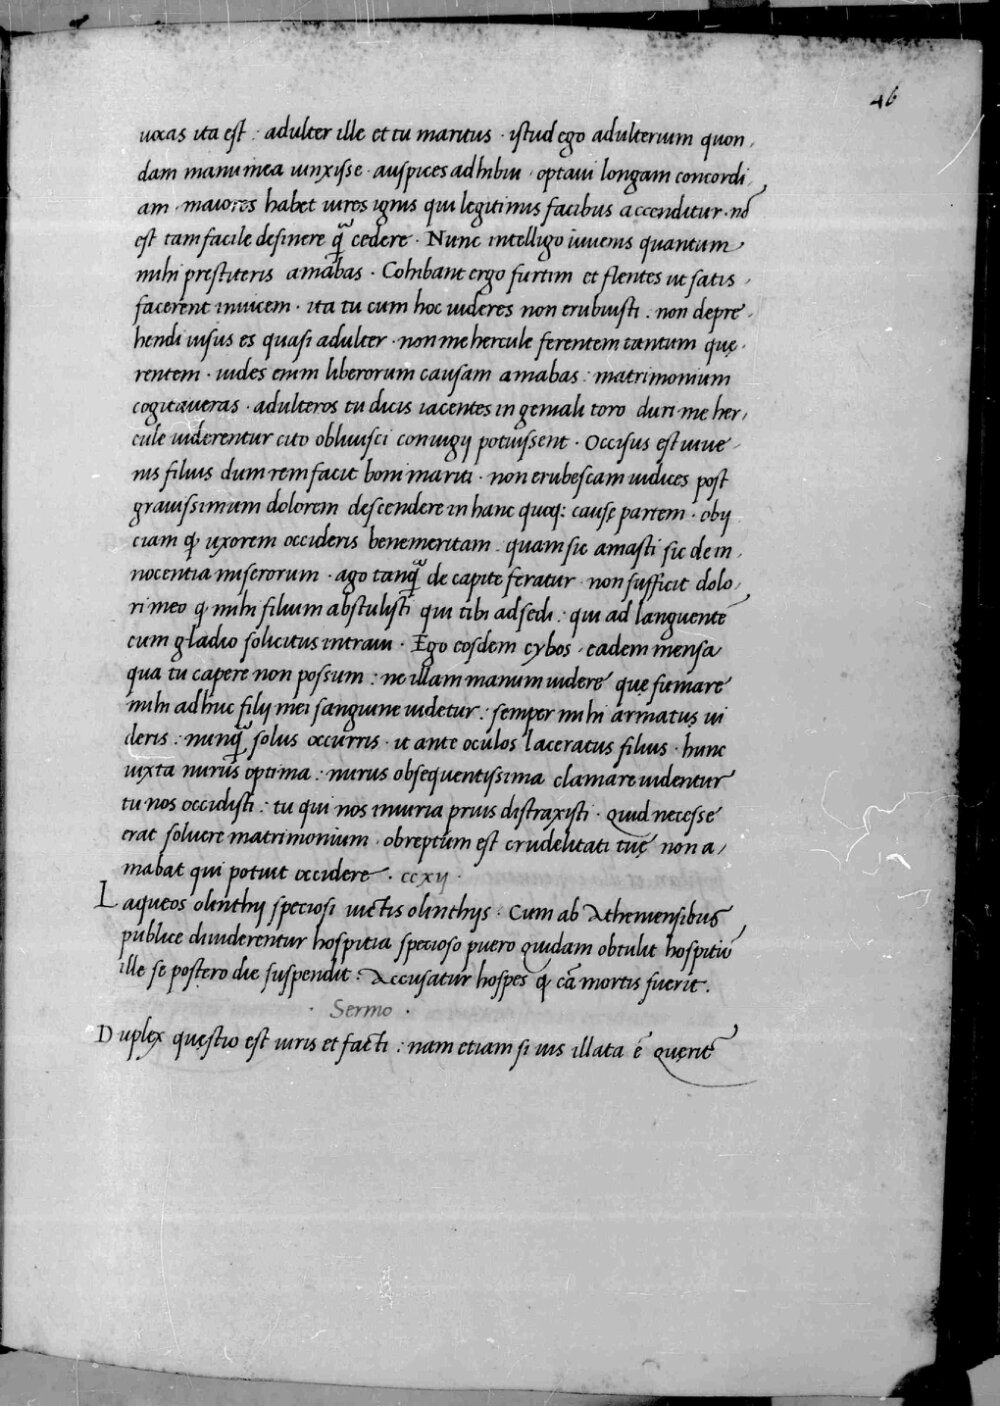 46
uocas ita est : adulter ille et tu maritus · istud ego adulterium quon,
dam manu mea iunxisse · auspices adhibui · optaui longam concordi
am · maiores habet uires ignis qui legitimis facibus accenditur · nō
est tam facile desinere q̄ꝫ cedere · Nunc intelligo iuuenis quantum
mihi prestiteris amabas · Cohibant ergo furtim et flentes ut satis,
facerent inuicem · ita tu cum hoc uideres non erubuisti · non depre,
hendi uisus es quasi adulter · non me hercule ferentem tantum quę,
rentem · uides enim liberorum causam amabas : matrimonium
cogitaueras · adulteros tu dicis iacentes in geniali toro duri me her,
cule uiderentur cito obliuisci coniugij potuissent · Occisus est iuue,
nis filius dum rem facit boni mariti · non erubescam iudices post
grauissimum dolorem descendere in hanc quoq: causę partem · obij
ciam ꝙ uxorem occideris benemeritam · quam sic amasti sic de in,
nocentia miserorum · ago tanq̄ꝫ de capite feratur · non sufficit dolo,
ri meo ꝙ mihi filium abstulisti qui tibi adsedi : qui ad languentē
cum gladio solicitus intraui · Ego eosdem cybos · eadem mensa
qua tu capere non possum : ne illam manum uidere quę fumare
mihi adhuc filij mei sanguine uidetur : semper mihi armatus ui
deris : nunq̄ꝫ solus occurris · it ante oculos laceratus filius · hunc
iuxta nurus optima : nurus obsequentissima clamare uidentur
tu nos occidisti : tu qui nos iniuria prius distraxisti · Quid necesse
erat soluere matrimonium · obreptum est crudelitati tuę non a,
mabat qui potuit occidere · ccxij ·
Laqueos olinthij speciosi uictis olinthijs · Cum ab Atheniensibus
publice diuiderentur hospitia specioso puero quidam obtulit hospitiū
ille se postero die suspendit : Accusatur hospes ꝙ cā mortis fuerit .
· Sermo ·
Duplex quęstio est iuris et facti : nam etiam si uis illata ē quęrit̄